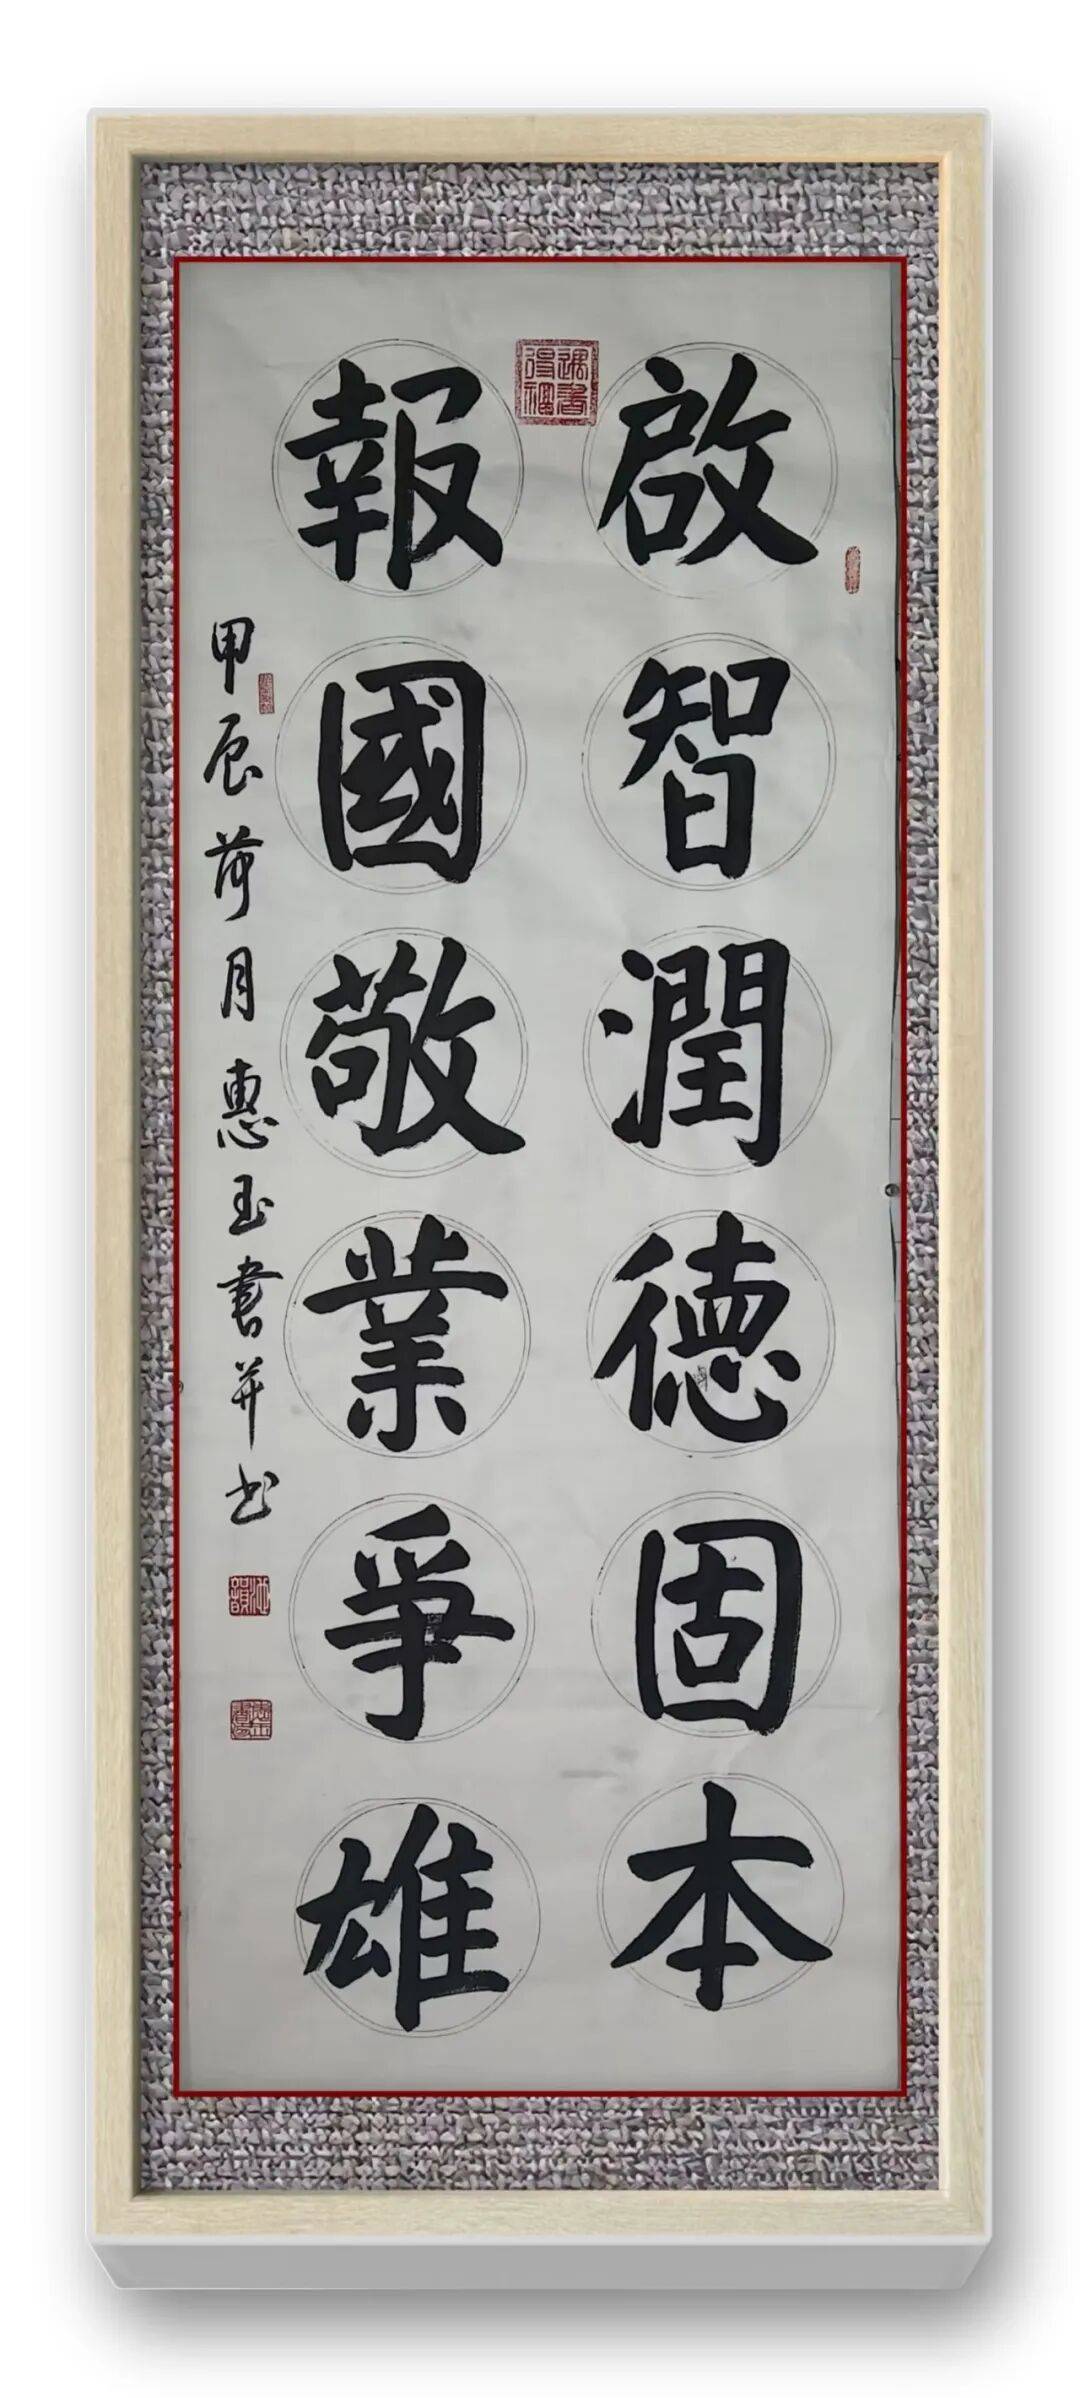 啟智潤德固本
報國敬業爭雄
甲辰荷月惠玉書并书